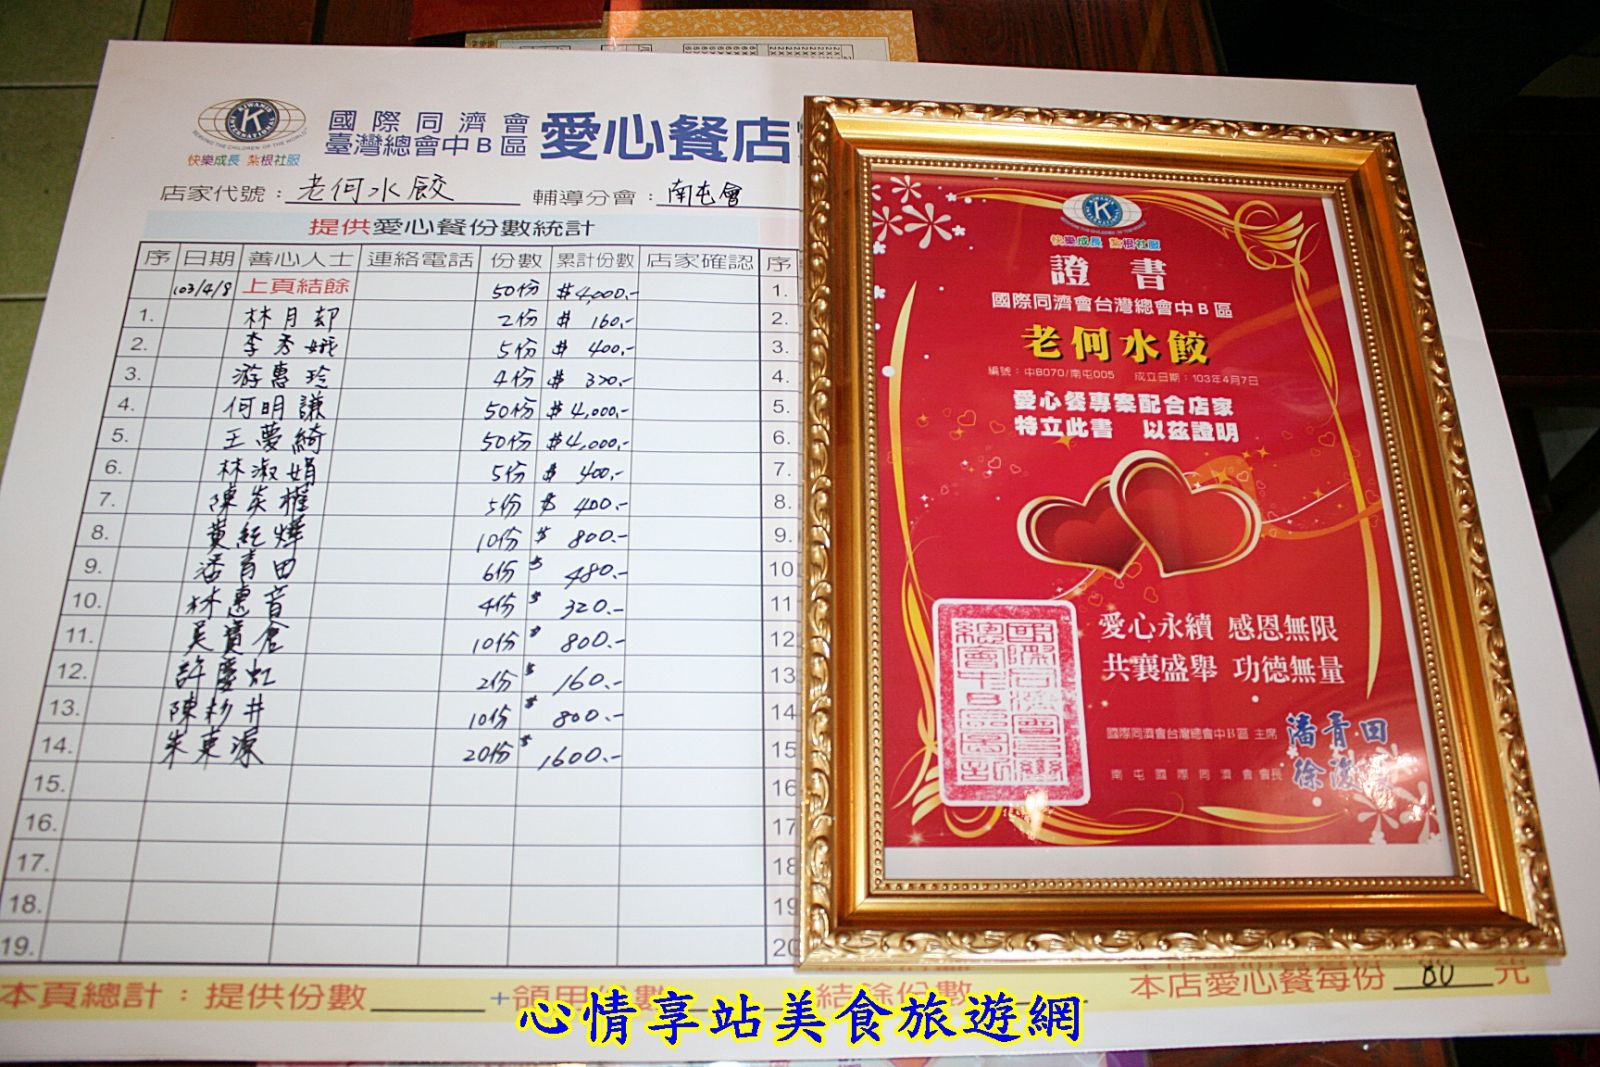 KIWANIS
INTERNATIONAL
SERVING THE CHILDREN OF THE WORLD
快樂成長 紮根社服
國際同濟會
臺灣總會中B區
愛心餐店
店家代號：老何水餃 輔導分會：南屯會
提供愛心餐份數統計
序 日期 善心人士 連絡電話 份數 累計份數 店家確認 序
103/4/8 上頁結餘 50份 $4,000.- 1.
1. 林月却 2份 $ 160.- 2.
2. 李秀娥 5份 $ 400.- 3.
3. 游惠玲 4份 $ 320.- 4.
4. 何明謙 50份 $4,000.- 5.
5. 王夢綺 50份 $4,000.- 6.
6. 林淑娟 5份 $ 400.- 7.
7. 陳炎權 5份 $ 400.- 8.
8. 黃紀燁 10份 $ 800.- 9.
9. 潘青田 6份 $ 480.- 10
10. 林惠音 4份 $ 320.- 11
11. 吳寶倉 10份 $ 800.- 12
12. 許慶虹 2份 $ 160.- 13
13. 陳杉井 10份 $ 800.- 14
14. 朱東源 20份 $ 1600.- 15
15. 16
16. 17
17. 18
18. 19
19. 20
本頁總計：提供份數 +領用份數 結餘份數 本店愛心餐每份 80 元
快樂成長 紮根社服
證書
國際同濟會台灣總會中B區
老何水餃
編號：中B070/南屯005 成立日期：103年4月7日
愛心餐專案配合店家
特立此書 以茲證明
愛心永續 感恩無限
共襄盛舉 功德無量
國際同濟會台灣總會中B區 主席 潘青田
南屯國際同濟會會長 徐浚
心情享站美食旅遊網